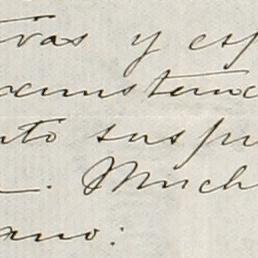 tras y esp
cunstanc
nto suspi
. Much
ano: